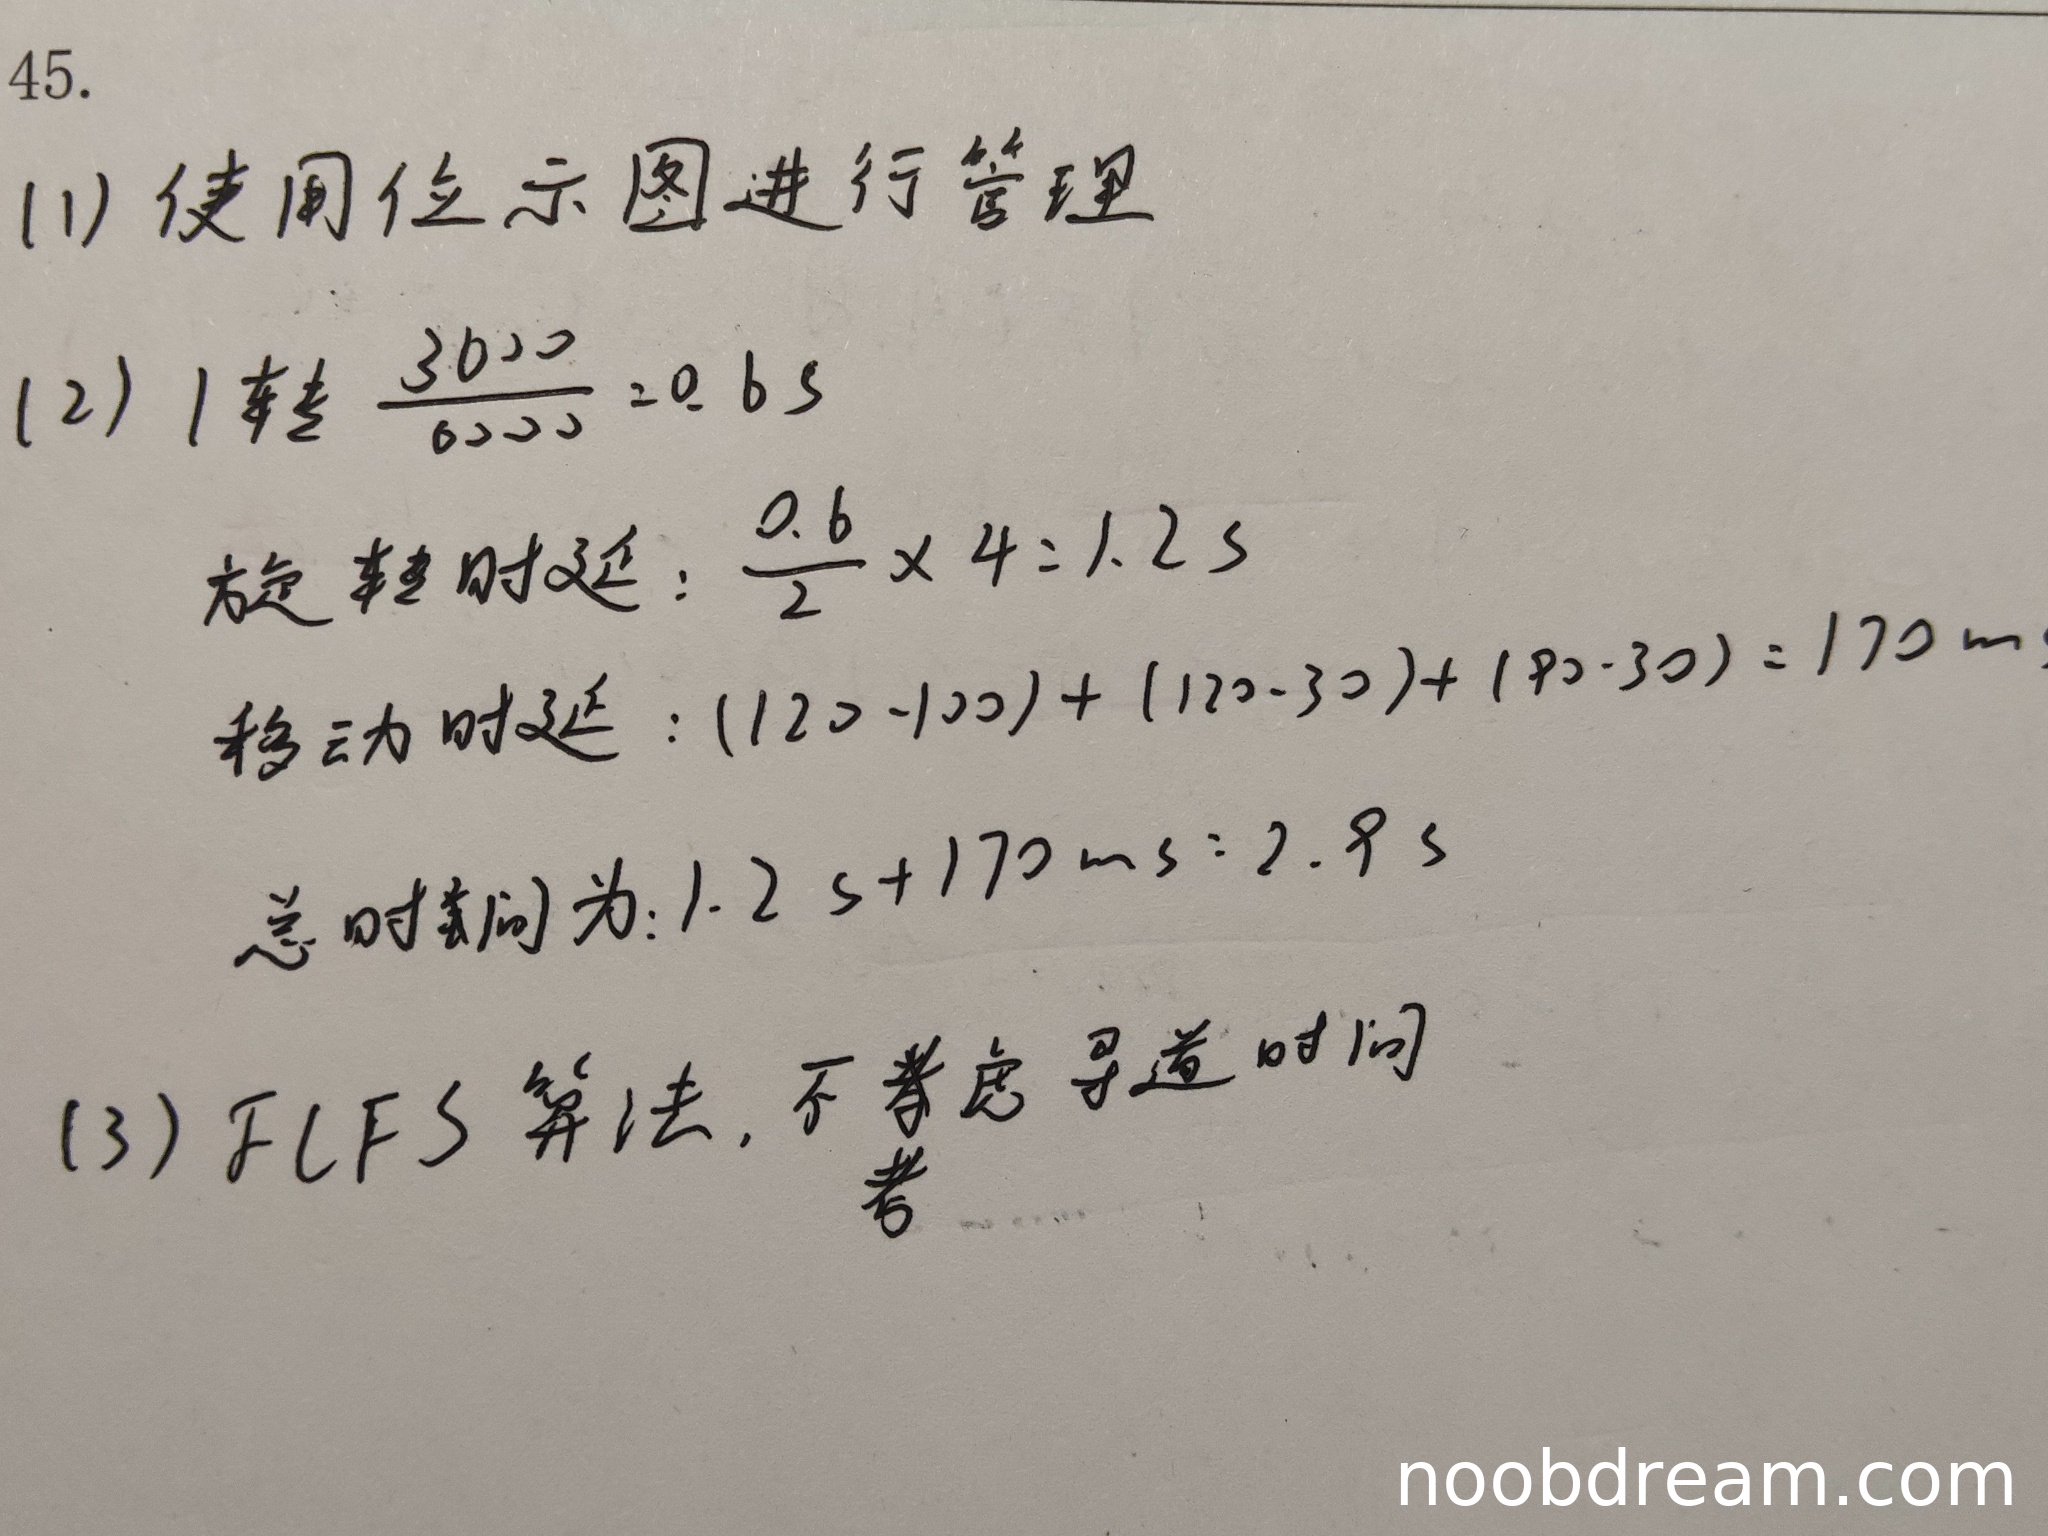 45.
(1) 使用位示图进行管理
(2) 1转 3600/6000 = 0.6s
旋转时延: 0.6/2 × 4 = 1.2s
移动时延: (120-100) + (120-30) + (90-30) = 170ms
总时间为: 1.2s + 170ms = 2.9s
(3) FCFS 算法, 不考虑寻道时间
考
noobdream.com